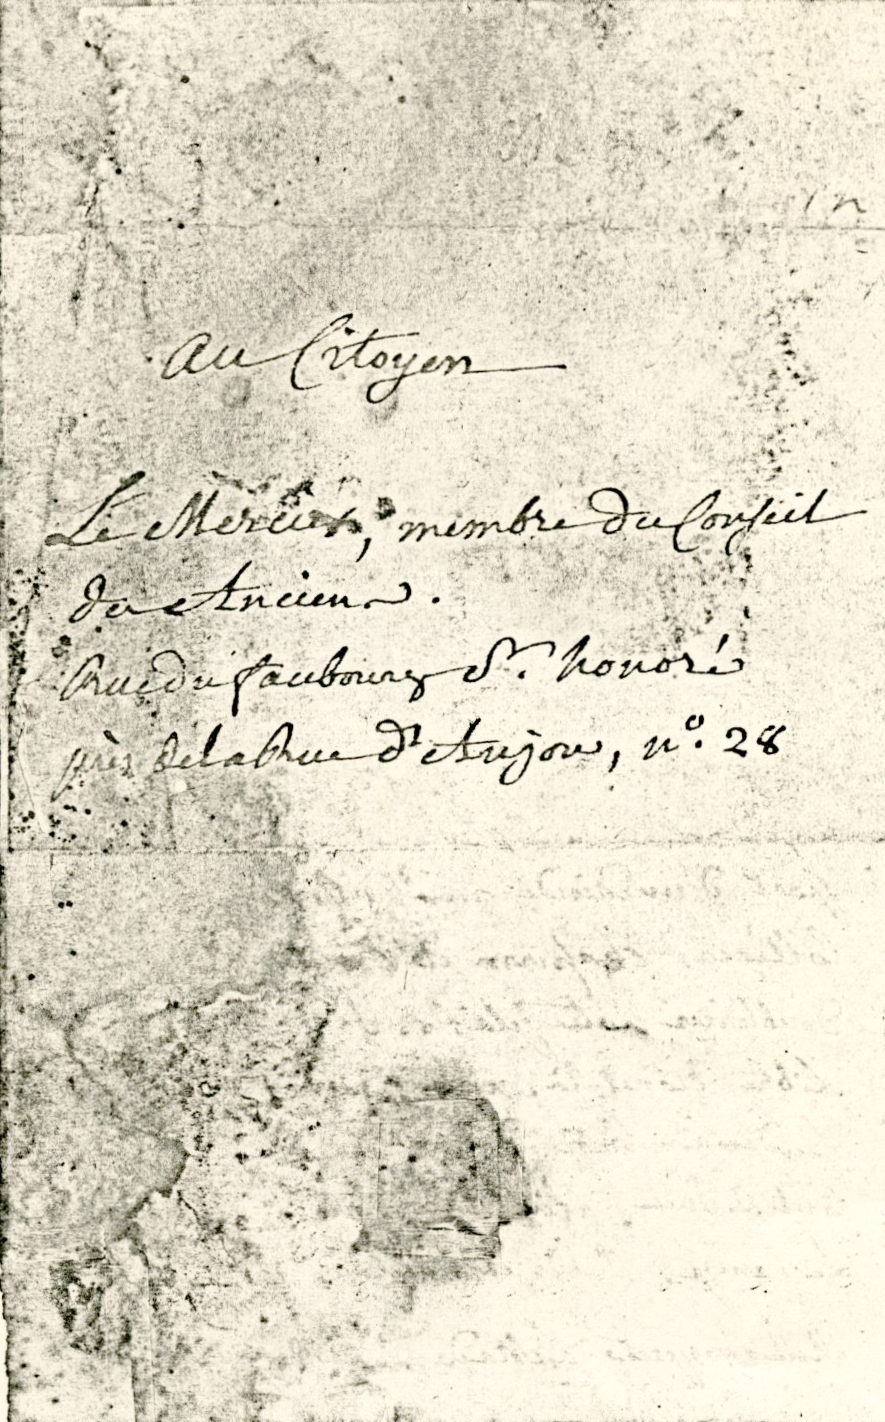 au Citoyen
Le Mercier, membre du Conseil
des Anciens.
Rue du faubourg St. honoré
près de la Rue d'Anjou, n°. 28